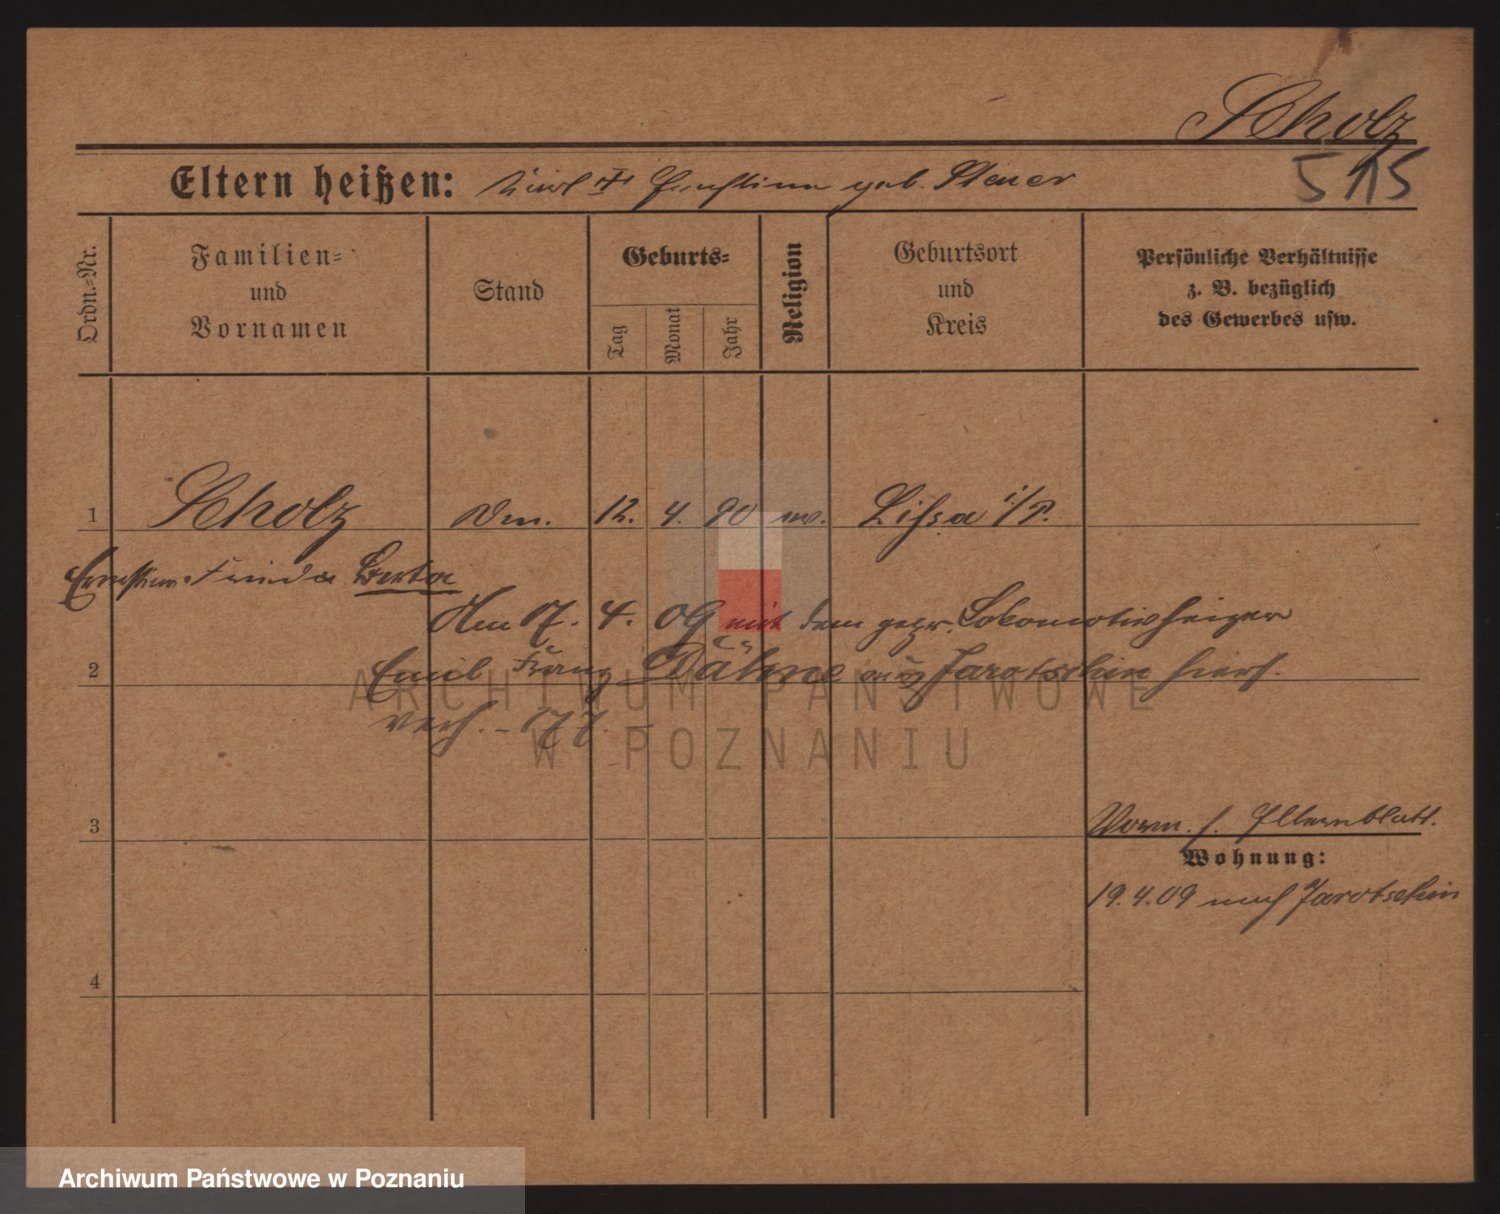 Scholz
515
Eltern heißen: Karl † Ernstine geb. Steuer
Ordn.-Nr.
Familien- und Vornamen
Stand
Geburts-
Tag
Monat
Jahr
Religion
Geburtsort und Kreis
Persönliche Verhältnisse
z. B. bezüglich
des Gewerbes usw.
1 Scholz 12. 4. 90 ev. Lissa i/P.
Ernstine Frieda Berta
Am 17. 4. 09 mit dem gepr. Lokomotivheizer
2 Emil Franz Dähne aus Jarotschin hier
verh.
3
Vorm. s. Elternblatt.
Wohnung:
19.4.09 nach Jarotschin
4
ARCHIWUM PAŃSTWOWE
W POZNANIU
Archiwum Państwowe w Poznaniu